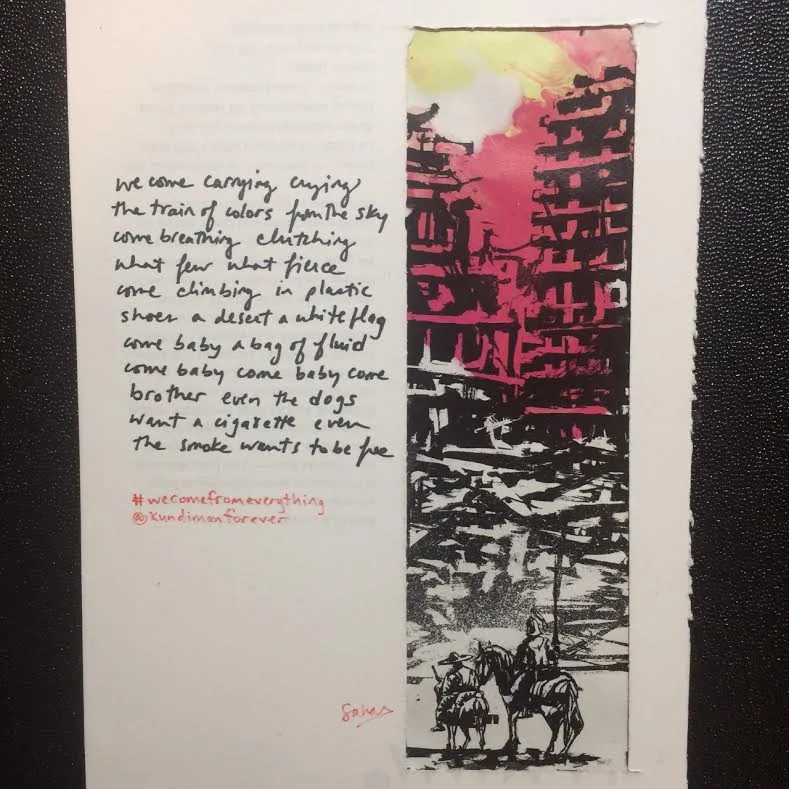 we come carrying crying
the train of colors from the sky
come breathing clutching
what few what fierce
come climbing in plastic
shoes a desert a white flag
come baby a bag of fluid
come baby come baby come
brother even the dogs
want a cigarette even
the smoke wants to be free
#wecomefromeverything
@kundimanforever
Sahar